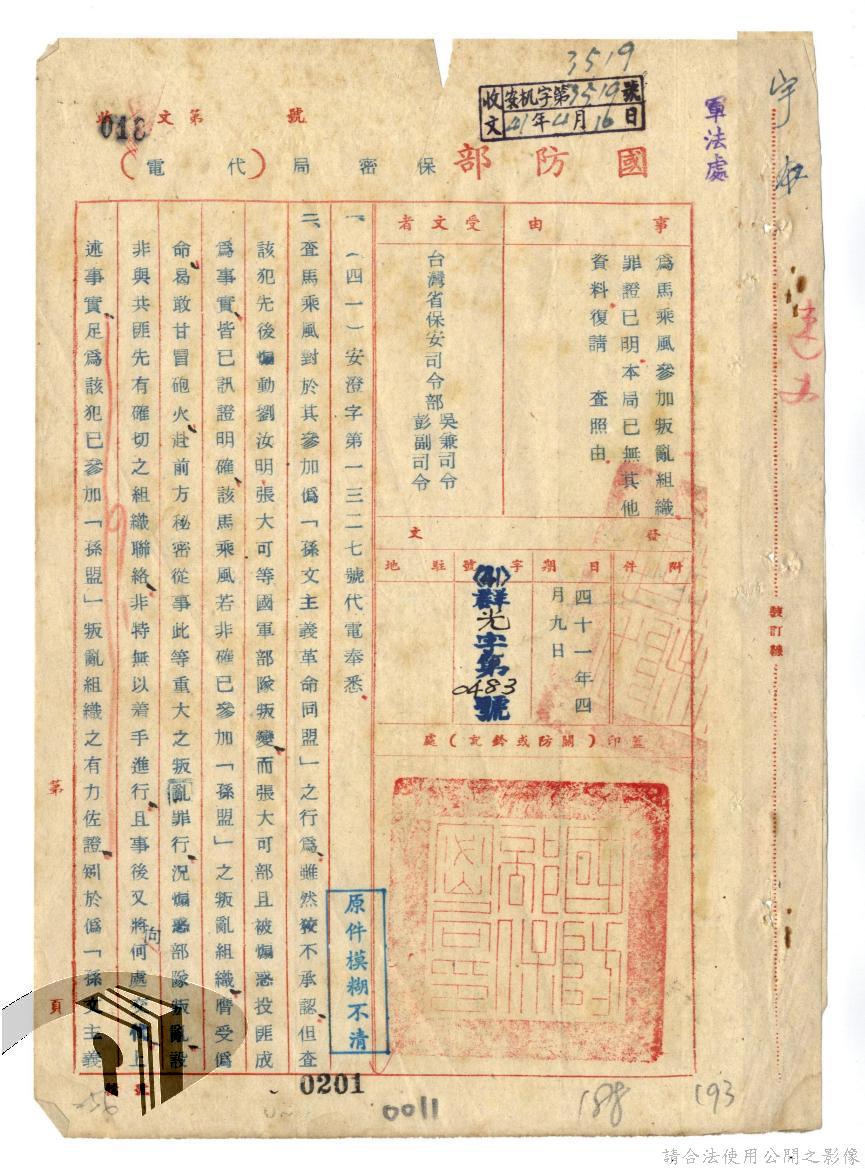 3519
收文
安机字第3519號
41年4月16日
軍法處
018
收文第 號
國防部保密局(代電)
事由
為馬乘風參加叛亂組織
罪證已明本局已無其他
資料復請 查照由
受文者
台灣省保安司令部
吳兼司令
彭副司令
發文
附件
日期
四十一年四
月九日
字號
(41)群光字第0483號
駐地
蓋印(關防或鈐記)處
一、(四一)安澄字第一三二七號代電奉悉
二、查馬乘風對於其參加偽「孫文主義革命同盟」之行為雖然狡不承認但查
該犯先後煽動劉汝明張大可等國軍部隊叛變而張大可部且被煽惑投匪成
為事實皆已訊證明確該馬乘風若非確已參加「孫盟」之叛亂組織膺受偽
命曷敢甘冒砲火赴前方秘密從事此等重大之叛亂罪行况煽惑部隊叛亂設
非與共匪先有確切之組織聯絡非特無以着手進行且事後又將向何處交代上
述事實足為該犯已參加「孫盟」叛亂組織之有力佐證矧於偽「孫文主義
原件模糊不清
裝訂線
第 頁
0201
0011
188
193
請合法使用公開之影像